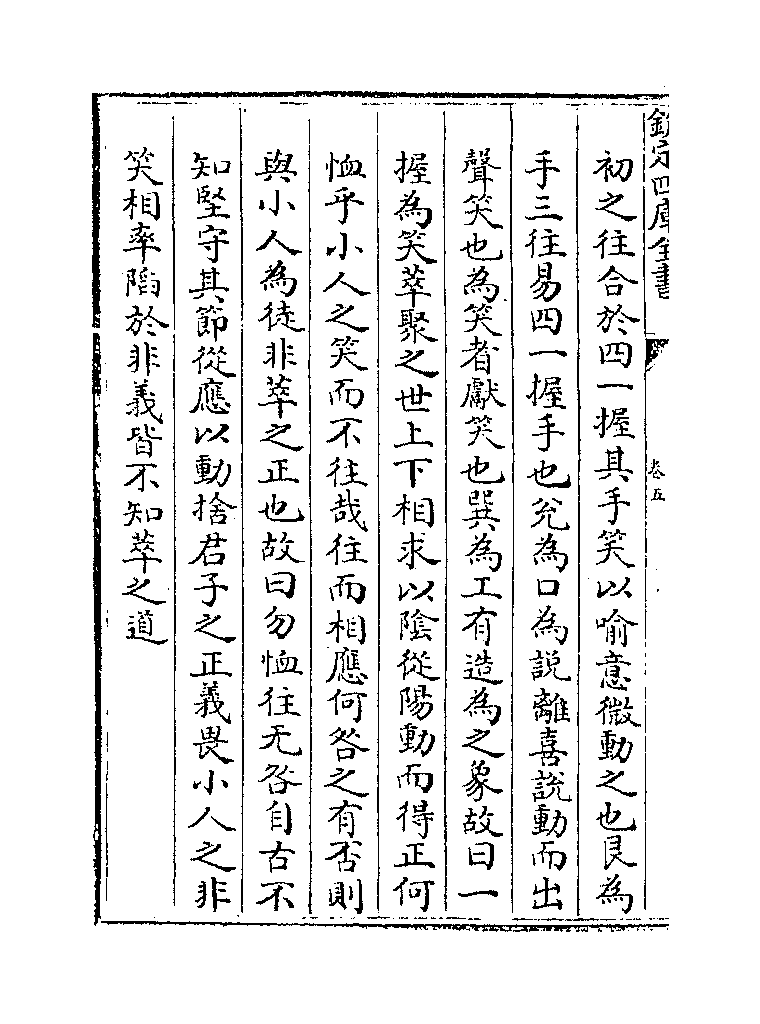 欽定四庫全書
卷五
初之往合於四一握其手笑以喻意微動之也艮為
手三往易四一握手也兊為口為説離喜説動而出
聲笑也為笑者獻笑也巽為工有造為之象故曰一
握為笑萃聚之世上下相求以陰從陽動而得正何
恤乎小人之笑而不往哉往而相應何咎之有否則
與小人為徒非萃之正也故曰勿恤往无咎自古不
知堅守其節從應以動捨君子之正義畏小人之非
笑相率陷於非義皆不知萃之道